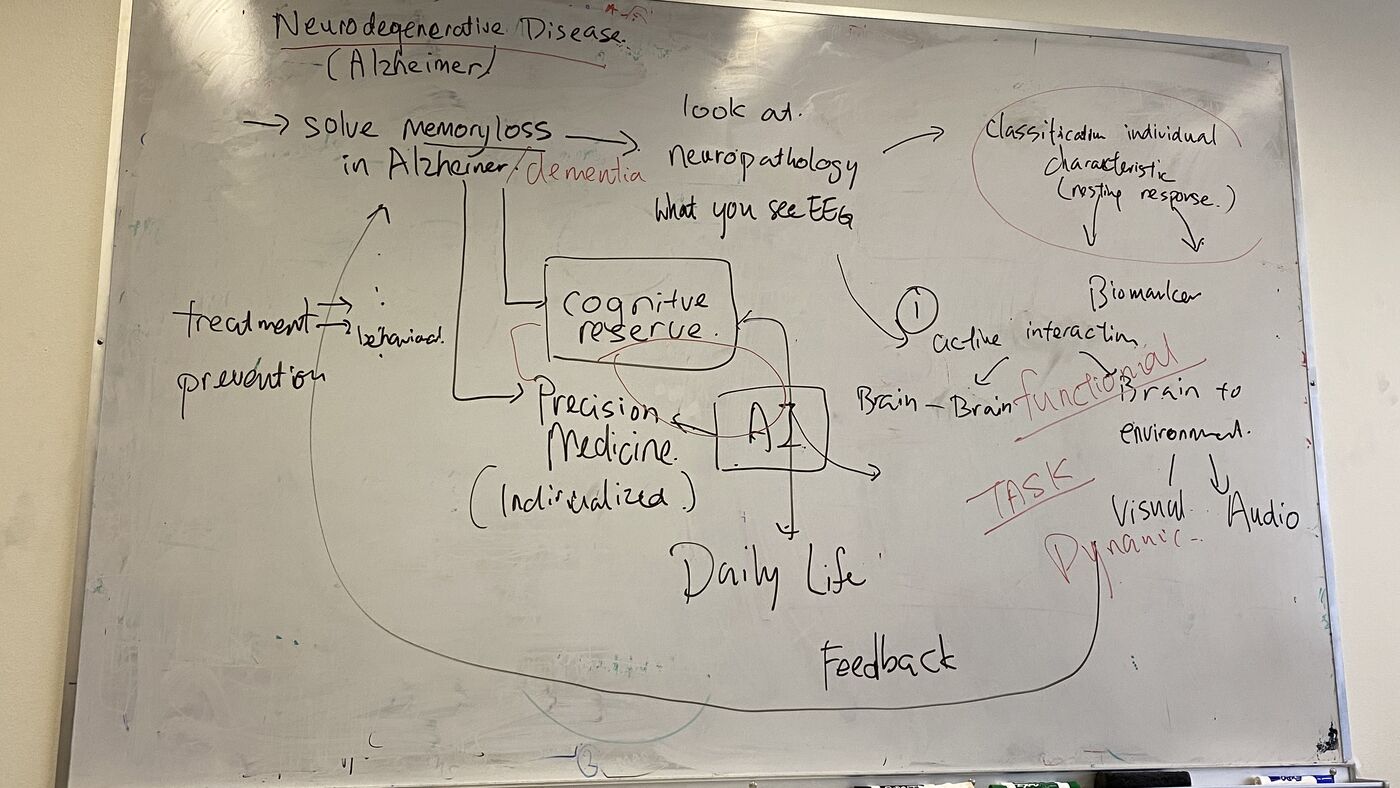 Neurodegenerative Disease.
(Alzheimer)
→ solve memory loss →
in Alzheimer / dementia
look at.
neuropathology
what you see EEG
Classification individual
characteristic
(resting response.)
Biomarker
treatment
prevention
behavioral.
Cognitve
reserve.
Precision
Medicine.
(Individualized)
AI
Daily Life
①
active interaction
Brain - Brain
functionial
Brain to
environment.
TASK
Visual
Audio
Dynamic
Feedback